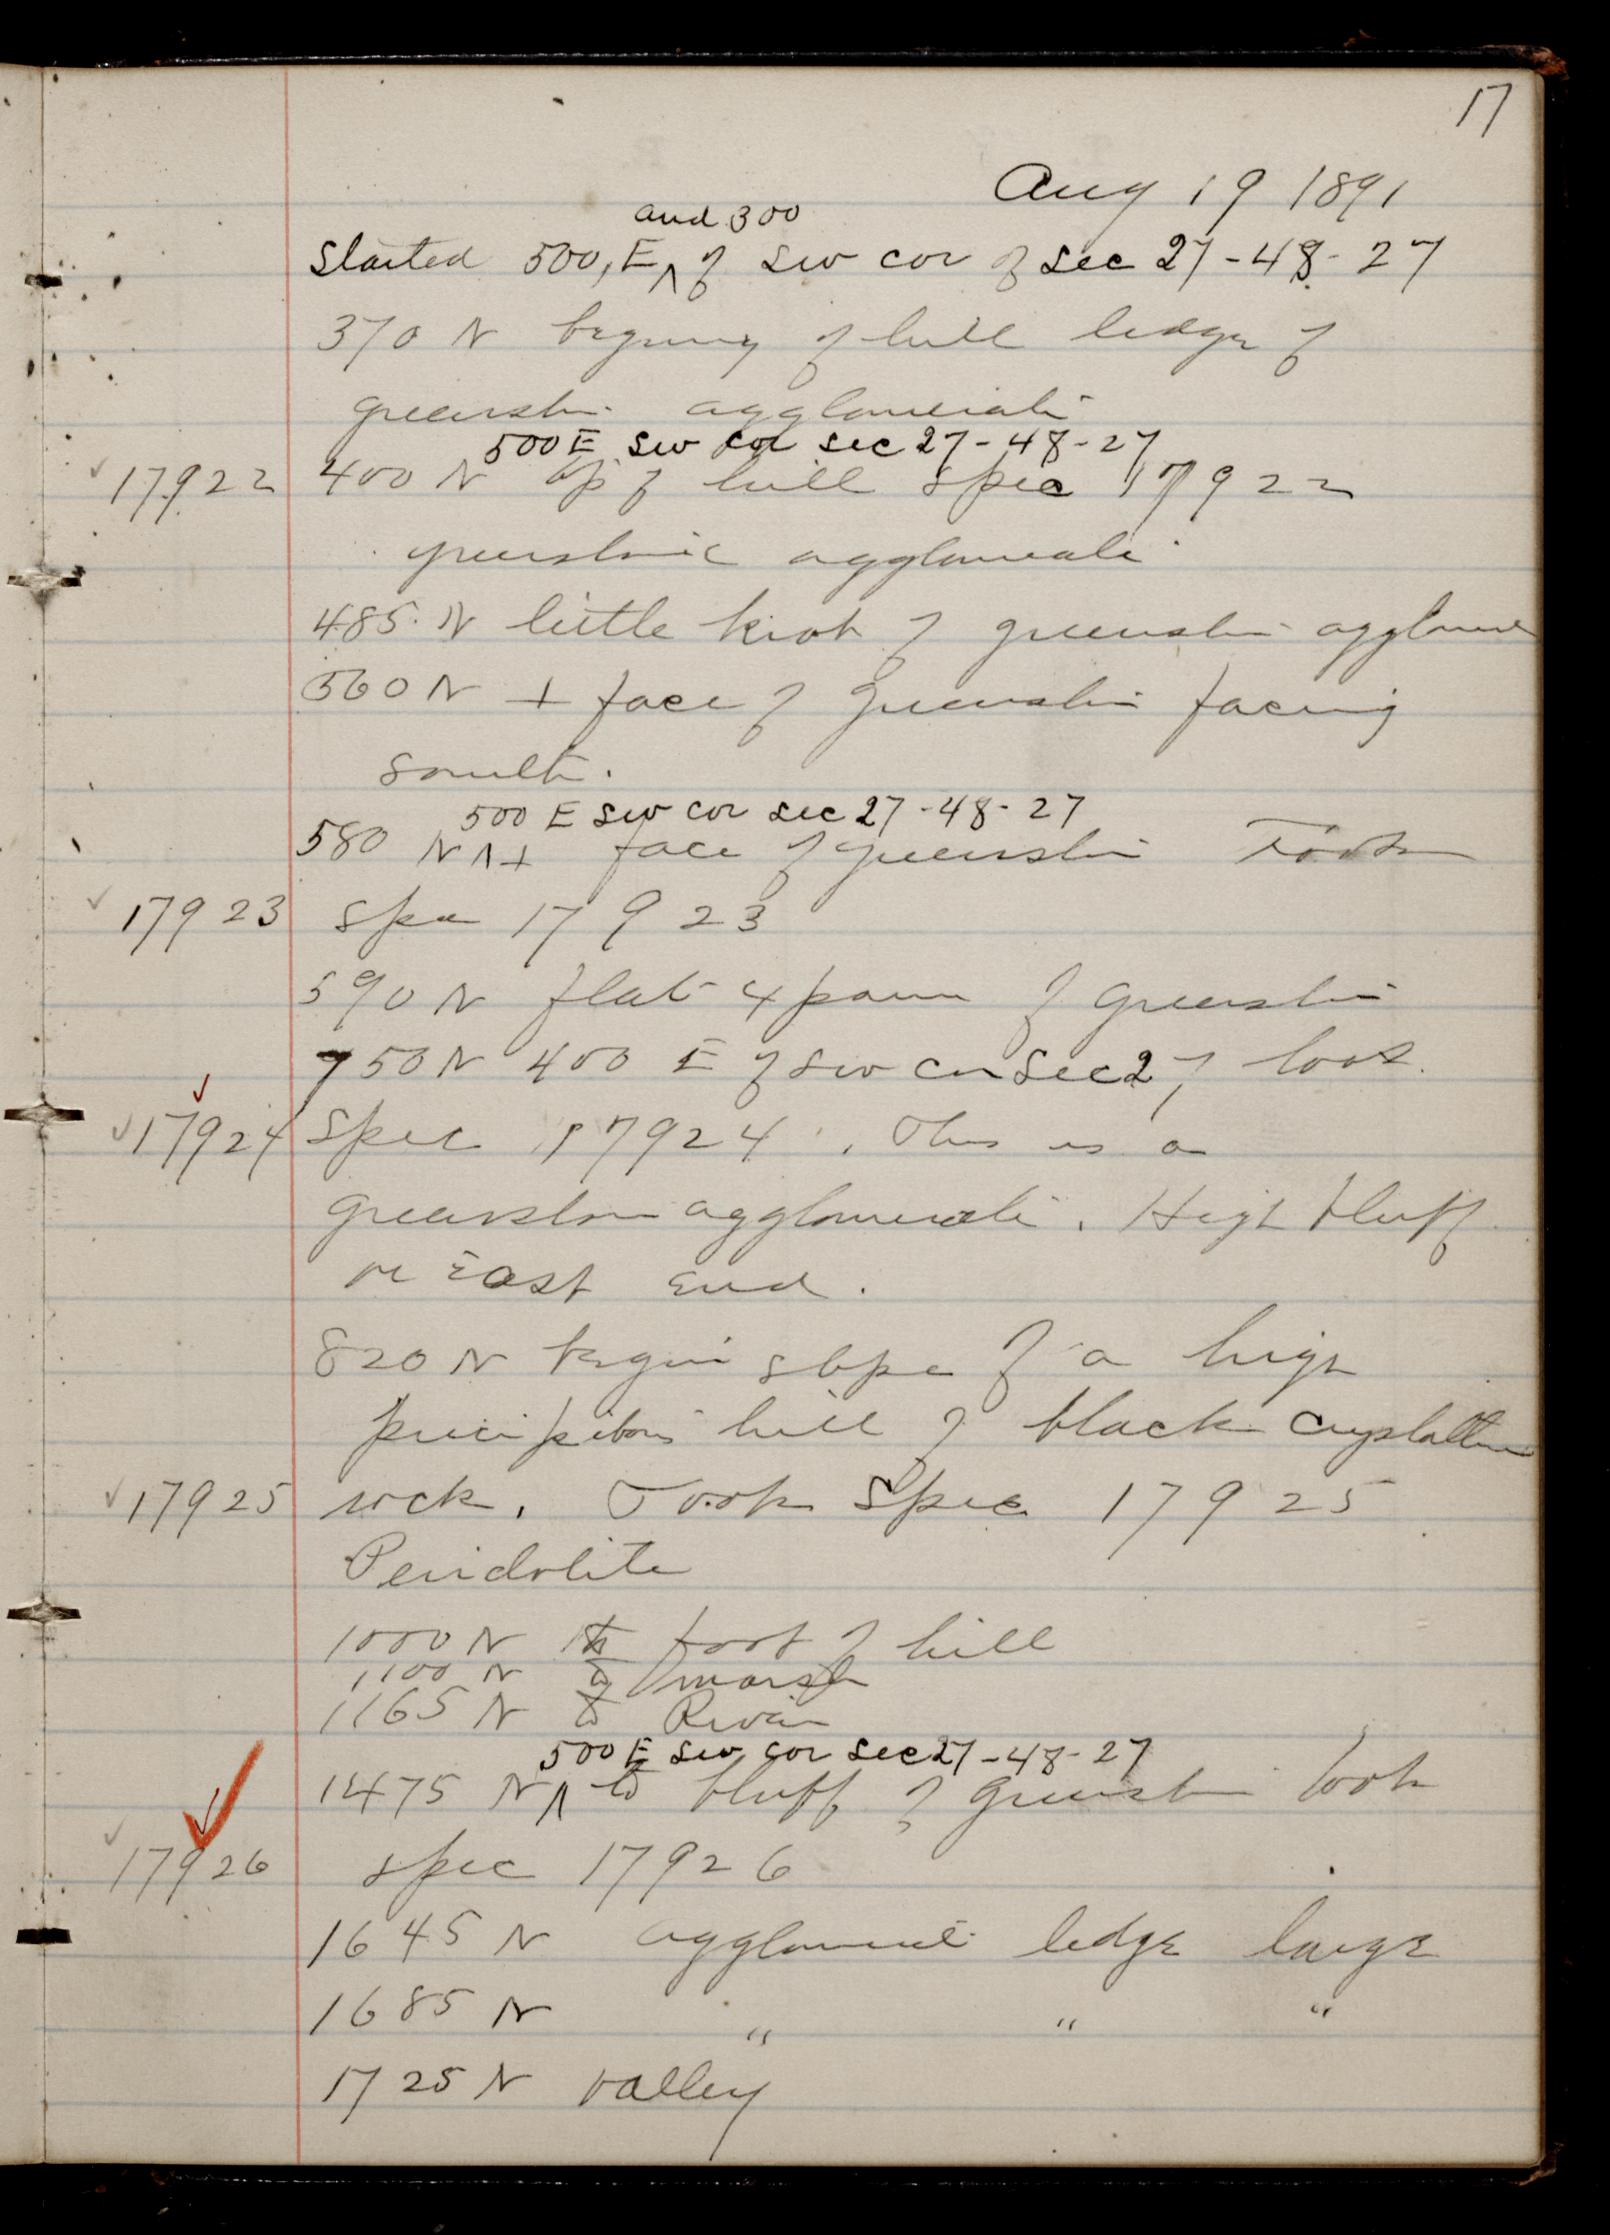 17
Aug 19 1891
and 300
Started 500, E ^ of SW cor of Sec 27-48-27
370 N begining of hill ledge of
greenston agglomerate
500 E SW cor sec 27-48-27
17922 400 N top of hill Spec 17922
greenstone agglomerate
485 N little knob of greenston agglomer
560 N + face of greenston facing
south.
500 E SW cor sec 27-48-27
580 N ^ + face of greenston Took
17923 spec 17923
590 N flat of greenston
750 N 400 E of SW cor Sec 27 took
17924 Spec 17924. This is a
greenston agglomerate. High bluff
on East end.
820 N begin slope of a high
precipitous hill of black crystalline
17925 rock. Took Spec 17925
Peridolite
1000 N to foot of hill
1100 N to marsh
1165 N to River
500 E SW cor Sec 27-48-27
1475 N ^ to bluff of greenston took
17926 spec 17926
1645 N agglomerate ledge large
1685 N " " "
1725 N valley